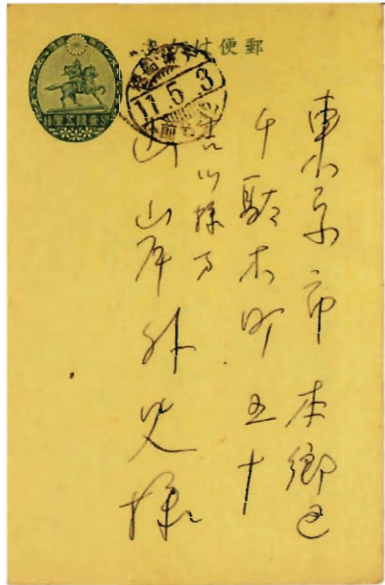 郵便はがき
11.5.3
東京市本郷区
千駄木町五十
吉川様方
山岸外史様